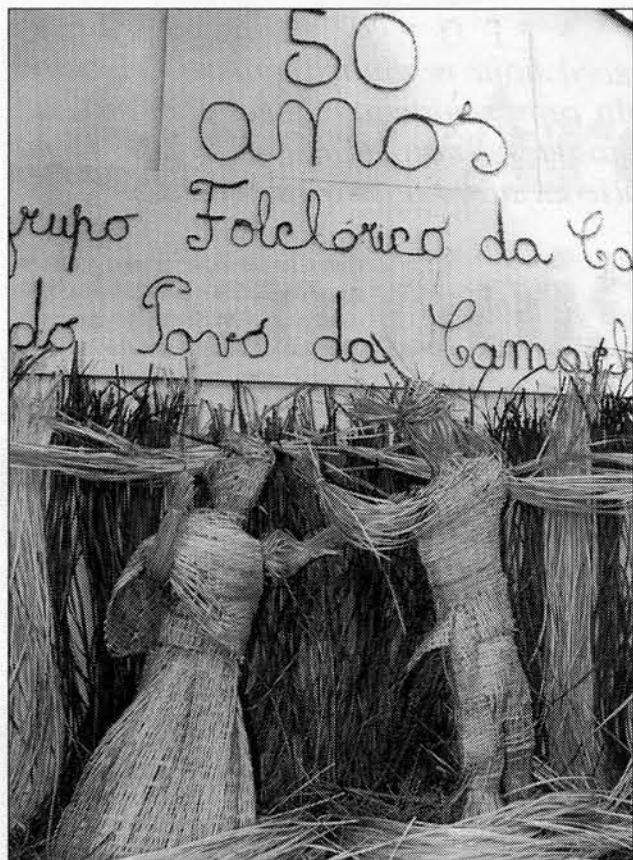 50
anos
grupo Folclórico da Ca
do Povo da Camach